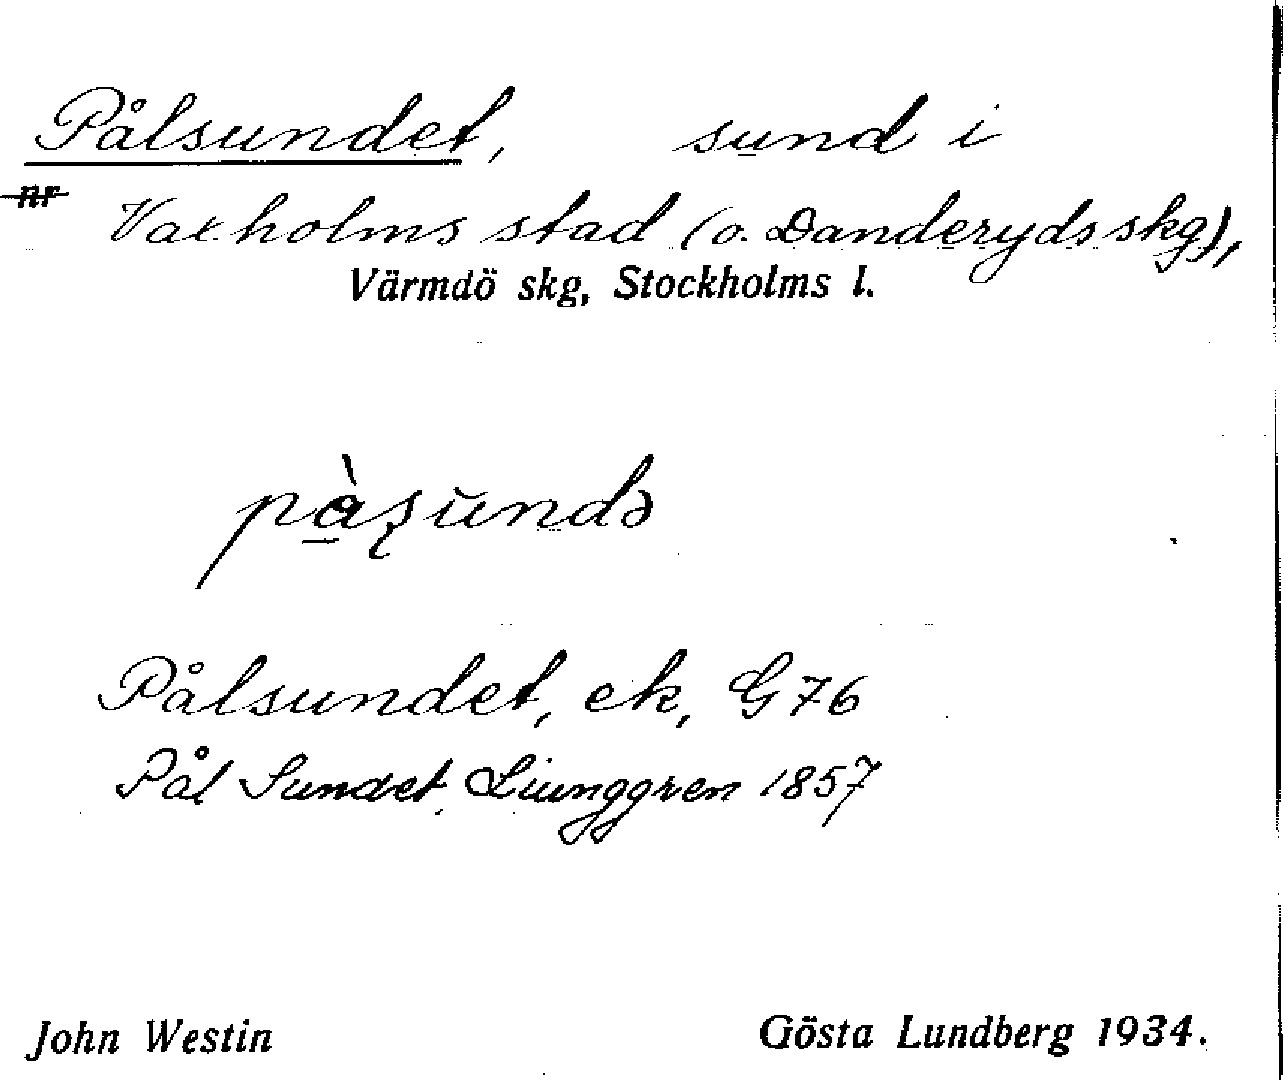 Pålsundet, sund i
nr Vaxholms stad (o. Danderyds skg),
Värmdö skg, Stockholms l.
Pålsundet, ek, G 76
Pål Sundet, Liunggren 1857
John Westin Gösta Lundberg 1934.